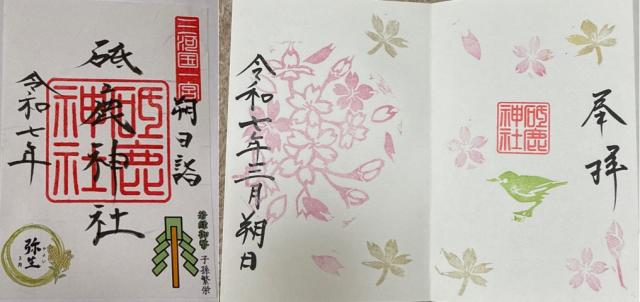 三河国一宮
朔日詣
砥鹿神社
砥鹿神社
令和七年
子孫繁栄
弥生
やよい
3月
奉拝
砥鹿神社
令和七年三月朔日